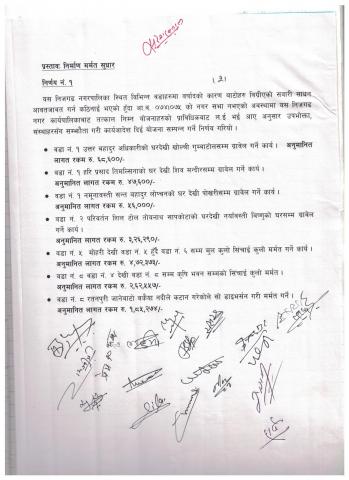 प्रस्तावः निर्माण मर्मत सुधार
निर्णय नं. १
(३)
यस निजगढ नगरपालिका स्थित विभिन्न वडाहरुमा वर्षादको कारण बाटोहरु विग्रीएको सवारी साधन
आवतजावत गर्न कठिनाई भएको हुँदा आ.व. ०७४।०७५ को नगर सभा नभएको अवस्थामा यस निजगढ
नगर कार्यपालिकाबाट तत्काल निम्न योजनाहरुको प्राविधिकबाट ल.ई भई आए अनुसार उपभोक्ता,
संस्थाहरुसंग सम्झौता गरी कार्यादेश दिई योजना सम्पन्न गर्ने निर्णय गरियो ।
• वडा नं. १ उत्तर बहादुर अधिकारीको घरदेखी खोल्ची गुम्बाटोलसम्म ग्रावेल गर्ने कार्य । अनुमानित
लागत रकम रु. ६८,६००/-
• वडा नं. १ हरि प्रसाद तिमल्सिनाको घर देखी शिव मन्दीरसम्म ग्रावेल गर्ने कार्य ।
अनुमानित लागत रकम रु. ४७,६००/-
• वडा नं. १ नमुनावस्ती सन्त बहादुर लोप्चनको घर देखी पोखरीसम्म ग्रावेल गर्ने कार्य ।
अनुमानित लागत रकम रु. ५६,०००/-
• वडा नं. २ परिवर्तन शिल टोल लोवनाथ सापकोटाको घरदेखी नयाँवस्ती विष्णुको घरसम्म ग्रावेल
गर्ने कार्य । अनुमानित लागत रकम रु. ३,२६,२९०/-
• वडा नं. ५ मोहरी देखी वडा नं. ५ हुँदै वडा नं. ६ सम्म मुल कुलो सिंचाई कुलो मर्मत गर्ने कार्य ।
अनुमानित लागत रकम रु. ४,७२,५७३/-
• वडा नं. ८ वडा नं. ४ देखी वडा नं. ८ सम्म कृषि भवन सम्मको सिंचाई कुलो मर्मत ।
अनुमानित लागत रकम रु. २,६२,५५७/-
• वडा नं. ८ रतनपुरी जानेबाटो वकैया नदीले कटान गरेकोले सो डाइभर्सन गरी मर्मत गर्ने ।
अनुमानित लागत रकम रु. १,८५,२७४/-